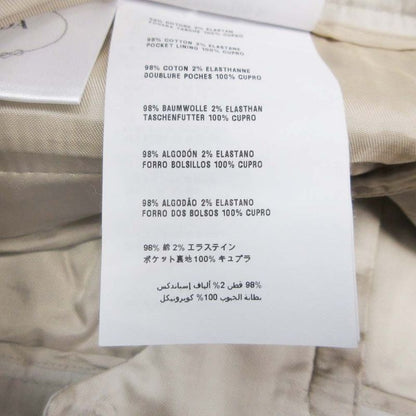 98% COTONE 2% ELASTAN
FODERA TASCHE 100% CUPRO
98% COTTON 2% ELASTANE
POCKET LINING 100% CUPRO
98% COTON 2% ELASTHANNE
DOUBLURE POCHES 100% CUPRO
98% BAUMWOLLE 2% ELASTHAN
TASCHENFUTTER 100% CUPRO
98% ALGODÓN 2% ELASTANO
FORRO BOLSILLOS 100% CUPRO
98% ALGODÃO 2% ELASTANO
FORRO DOS BOLSOS 100% CUPRO
98% 綿 2% エラステイン
ポケット裏地 100% キュプラ
98% قطن 2% ألياف إسباندكس
بطانة الجيوب 100% كوبرونيكل